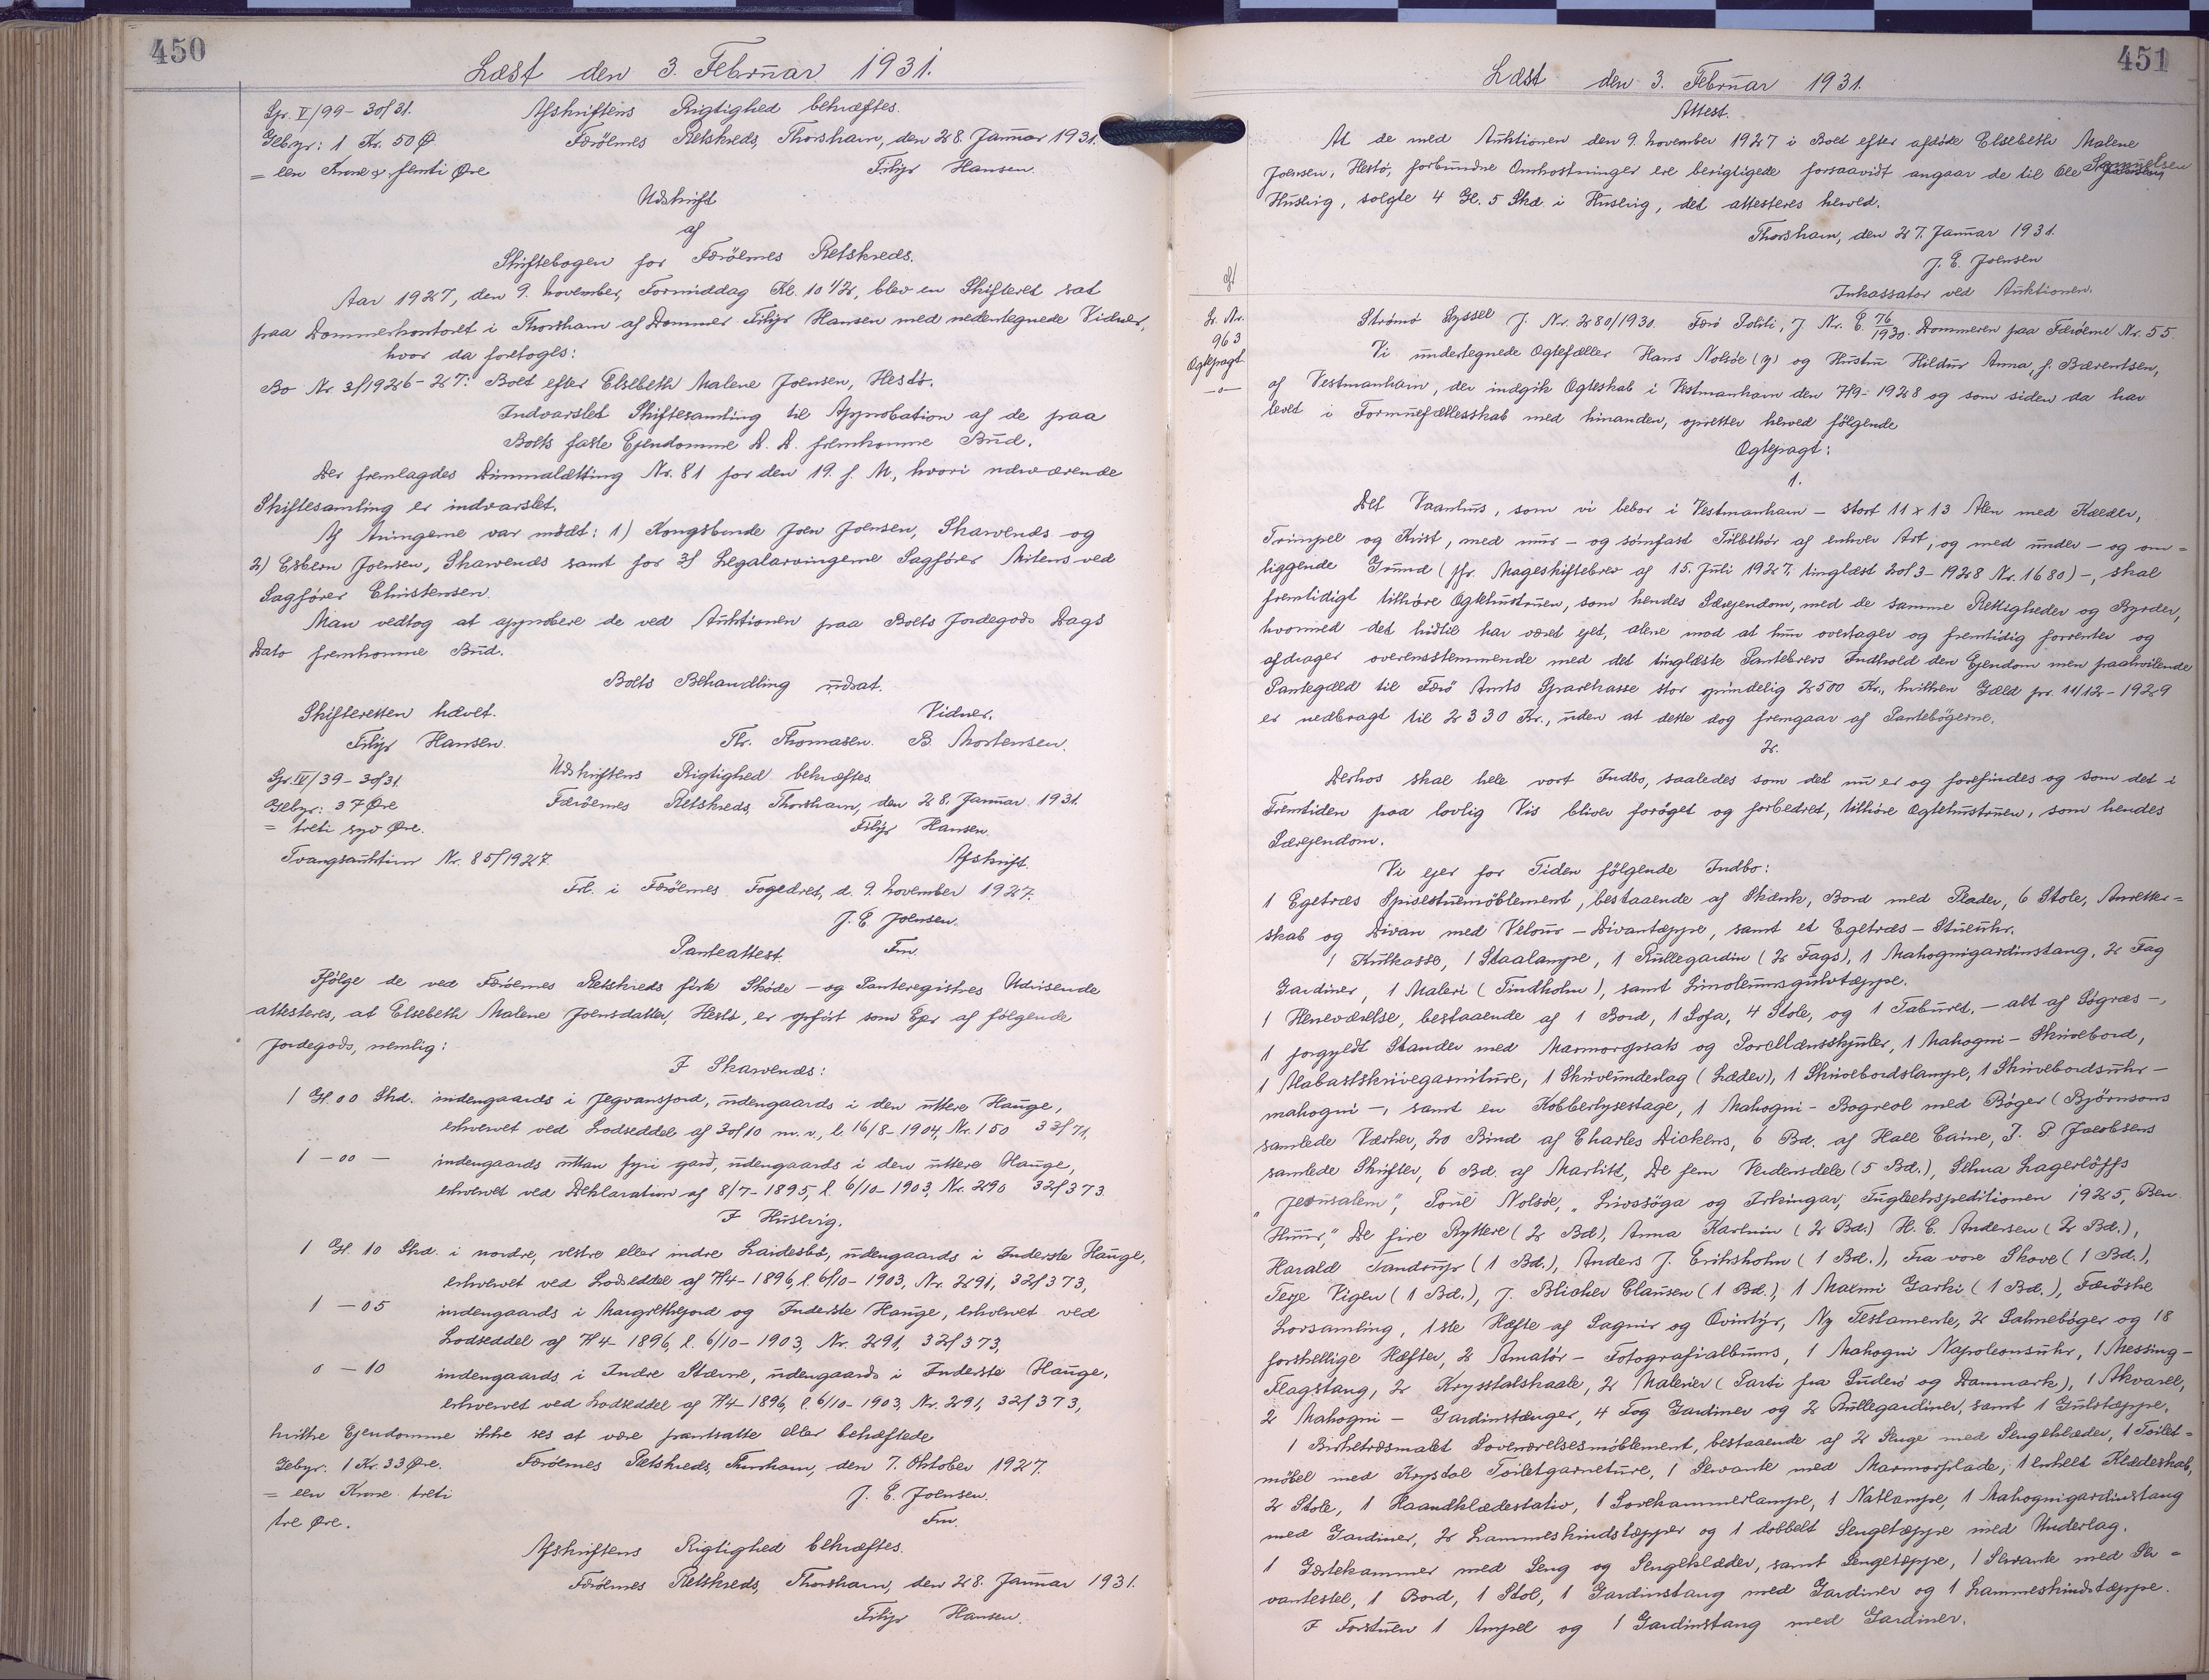 450
Læst den 3. Februar 1931.
Gr. V/99-30/31.
Afskriftens Rigtighed bekræftes.
Gebyr: 1 Kr. 50 Ø
Færöernes Retskreds, Thorshavn, den 28. Januar 1931.
= een Krone & femti Øre
Filip Hansen.
Udskrift
af
Skiftebogen for Færöernes Retskreds.
Aar 1927, den 9. November, Formiddag Kl. 10 1/2, blev en Skifteret sat
paa Dommerkontoret i Thorshavn af Dommer Filip Hansen med nedentegnede Vidner,
hvor da foretoges:
Bo Nr. 3/1926-27: Boet efter Elsebeth Malene Joensen, Hestö.
Indvarslet Skiftesamling til Approbation af de paa
Boets faste Ejendomme D. D. fremkomne Bud.
Der fremlagdes Dimmalætting Nr. 81 for den 19. f. M., hvori nærværende
Skiftesamling er indvarslet.
Af Arvingerne var mödt: 1) Kongsbonde Joen Joensen, Skarvenæs og
2) Esbern Joensen, Skarvenæs samt for 3/ Legalarvingerne Sagförer Mitens ved
Sagförer Christensen.
Man vedtog at approbere de ved Auktionen paa Boets Jordegods Dags
Dato fremkomne Bud.
Boets Behandling udsat.
Skifteretten hævet.
Vidner.
Filip Hansen.
Thr. Thomasen. B. Mortensen.
Gr. IV/39-30/31.
Udskriftens Rigtighed bekræftes.
Gebyr: 37 Øre
Færöernes Retskreds, Thorshavn, den 28. Januar 1931.
= treti syv Øre.
Filip Hansen.
Tvangsauktion Nr. 85/1927.
Afskrift.
Frl. i Færöernes Fogedret, d. 9. November 1927.
J. E. Joensen.
Fm.
Panteattest.
Ifölge de ved Færöernes Retskreds förte Sköde- og Panteregistres Udvisende
attesteres, at Elsebeth Malene Joensdatter, Hestö, er opfört som Ejer af fölgende
Jordegods, nemlig:
I Skarvenæs:
1 Gl. 00 Skd. indengaards i Jegvansjord, udengaards i den uttere Hauge,
erhvervet ved Lodseddel af 30/10 m. v., l. 16/8-1904, Nr. 150 33/71,
1 - 00 - indengaards uttan fyri gard, udengaards i den uttere Hauge,
erhvervet ved Deklaration af 8/7-1895, l. 6/10-1903, Nr. 290 32/373.
I Husevig.
1 Gl. 10 Skd. i nordre, vestre eller indre Laidesbö, udengaards i Inderste Hauge,
erhvervet ved Lodseddel af 7/4-1896, l. 6/10-1903, Nr. 291, 32/373,
1 - 05 indengaards i Margrethejord og Inderste Hauge, erhvervet ved
Lodseddel af 7/4-1896, l. 6/10-1903, Nr. 291, 32/373,
0 - 10 indengaards i Indre Stærne, udengaards i Inderste Hauge,
erhvervet ved Lodseddel af 7/4-1896, l. 6/10-1903, Nr. 291, 32/373,
hvilke Ejendomme ikke ses at være pantsatte eller behæftede
Gebyr. 1 Kr. 33 Øre.
Færöernes Retskreds, Thorshavn, den 7. Oktober 1927.
= een Krone treti
J. E. Joensen.
tre Øre.
Fm.
Afskriftens Rigtighed bekræftes.
Færöernes Retskreds, Thorshavn, den 28. Januar 1931.
Filip Hansen.
451
Læst den 3. Februar 1931.
Attest.
At de med Auktionen den 9. November 1927 i Boet efter afdöde Elsebeth Malene
Joensen, Hestö, forbundne Omkostninger ere berigtigede forsaavidt angaar de til Ole Samuelsen
Husevig, solgte 4 Gl. 5 Skd. i Husevig, det attesteres herved.
Thorshavn, den 27. Januar 1931.
J. E. Joensen
Inkassator ved Auktionen.
Lb. Nr.
963
Ægtepagt
-o-
Strömö Syssel J. Nr. 280/1930. Færö Politi, J. Nr. E. 76/1930. Dommeren paa Færöerne Nr. 55.
Vi undertegnede Ægtefæller Hans Nolsöe (y) og Hustru Hildur Anna, f. Bærentsen,
af Vestmanhavn, der indgik Ægteskab i Vestmanhavn den 7/9-1928 og som siden da har
levet i Formuefællesskab med hinanden, opretter herved fölgende
Ægtepagt:
1.
Det Vaanhus, som vi bebor i Vestmanhavn - stort 11 x 13 Alen med Kælder,
Trimpel og Kvist, med mur- og sömfast Tilbehör af enhver Art, og med under- og om=
liggende Grund (jfr. Mageskiftebrev af 15. Juli 1927, tinglæst 20/3-1928 Nr. 1680)-, skal
fremtidigt tilhöre Ægtehustruen, som hendes Særejendom, med de samme Rettigheder og Byrder,
hvormed det hidtil har været ejet, alene mod at hun overtager og fremtidig forrenter og
afdrager overensstemmende med det tinglæste Pantebrevs Indhold den Ejendommen paahvilende
Pantegæld til Færö Amts Sparekasse stor oprindelig 2500 Kr., hvilken Gæld pr. 11/12-1929
er nedbragt til 2330 Kr., uden at dette dog fremgaar af Pantebögerne.
2.
Derhos skal hele vort Indbo, saaledes som det nu er og forefindes og som det i
Fremtiden paa lovlig Vis bliver foröget og forbedret, tilhöre Ægtehustruen, som hendes
Særejendom.
Vi ejer for Tiden fölgende Indbo:
1 Egetræs Spisestuemöblement, bestaaende af Skænk, Bord med Plader, 6 Stole, Anretter=
skab og Divan med Velour-Divantæppe, samt et Egetræs-Stueuhr.
1 Kulkasse, 1 Staalampe, 1 Rullegardin (2 Fags), 1 Mahognigardinstang, 2 Fag
Gardiner, 1 Maleri (Tindholm), samt Linoleumsgulvtæppe.
1 Herreværelse, bestaaende af 1 Bord, 1 Sofa, 4 Stole, og 1 Taburet,- alt af Sögræs-,
1 forgyldt Stander med Marmoropsats og Porcellænsskjuler, 1 Mahogni-Skrivebord,
1 Alabastskrivegarniture, 1 Skriveunderlag (Læder), 1 Skrivebordslampe, 1 Skrivebordsuhr-
mahogni-, samt en Kobberlysestage, 1 Mahogni-Bogreol med Böger (Björnsons
samlede Værker, 20 Bind af Charles Dickens, 6 Bd. af Hall Caine, J. P. Jacobsens
samlede Skrifter, 6 Bd. af Marlitt, De fem Verdensdele (5 Bd.), Selma Lagerlöffs
"Jerusalem", Poul Nolsöe, "Livssöga og Irkingar, Fugleekspeditionen 1925, Ben
Huur," De fire Ryttere (2 Bd), Anna Karenin (2 Bd.) H. C. Andersen (2 Bd.),
Harald Tandrup (1 Bd.), Anders J. Eriksholm (1 Bd.), Fra vore Skove (1 Bd.),
Terje Vigen (1 Bd.), J. Blicher Clausen (1 Bd.), 1 Maxmi Gorki (1 Bd.), Færöske
Lovsamling, 1ste Hæfte af Sagnir og Ævintýr, Ny Testamente, 2 Salmeböger og 18
forskellige Hæfter, 2 Amatör-Fotografialbums, 1 Mahogni Napoleonsuhr, 1 Messing-
Flagstang, 2 Krysstalskaale, 2 Malerier (Parti fra Suderö og Danmark), 1 Akvarel,
2 Mahogni-Gardinstænger, 4 Fag Gardiner og 2 Rullegardiner, samt 1 Gulvtæppe.
1 Birketræsmalet Soveværelsesmöblement, bestaaende af 2 Senge med Sengeklæder, 1 Toilet=
möbel med Krystal Toiletgarneture, 1 Servante med Marmorplade, 1 enkelt Klædeskab,
2 Stole, 1 Haandklædestativ, 1 Sovekammerlampe, 1 Natlampe, 1 Mahognigardinstang
med Gardiner, 2 Lammeskindstæpper og 1 dobbelt Sengetæppe med Underlag.
1 Gæstekammer med Seng og Sengeklæder, samt Sengetæppe, 1 Servante med Ser=
vantestel, 1 Bord, 1 Stol, 1 Gardinstang med Gardiner og 1 Lammeskindstæppe.
I Forstuen 1 Ampel og 1 Gardinstang med Gardiner.